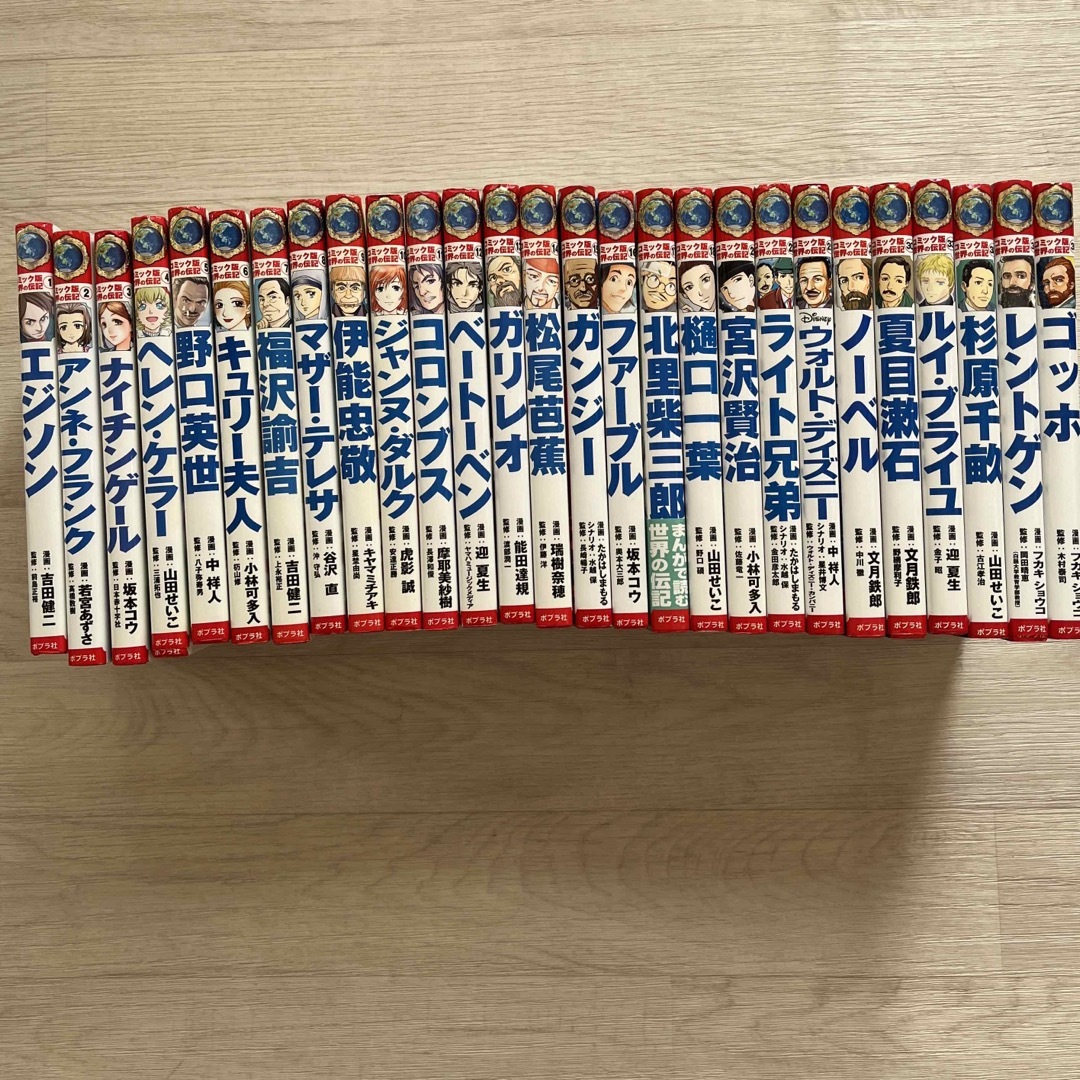 ミック版
世界の伝記
1
エジソン
漫画：吉田健二
監修：前島正裕
ミック版
世界の伝記
2
アンネ・フランク
漫画：若宮あずさ
ポプラ社
ミック版
世界の伝記
3
ナイチンゲール
漫画：坂本コウ
監修：日本赤十字社
ポプラ社
ミック版
世界の伝記
4
ヘレン・ケラー
漫画：山田せいこ
監修：三浦拓也
ポプラ社
ミック版
世界の伝記
5
野口英世
漫画：中 祥人
監修：八子弥寿男
ポプラ社
ミック版
世界の伝記
6
キュリー夫人
漫画：小林可多入
ポプラ社
ミック版
世界の伝記
7
福沢諭吉
漫画：吉田健二
監修：上永裕正
ポプラ社
ミック版
世界の伝記
マザー・テレサ
漫画：谷沢 直
監修：沖 守弘
ポプラ社
ミック版
世界の伝記
伊能忠敬
漫画：キヤマミチアキ
監修：星埜由尚
ポプラ社
ミック版
世界の伝記
ジャンヌ・ダルク
漫画：虎影 誠
監修：安達正勝
ポプラ社
ミック版
世界の伝記
コロンブス
漫画：摩耶美紗樹
監修：長澤和俊
ポプラ社
ミック版
世界の伝記
ベートーベン
漫画：迎 夏生
監修：ヤマハミュージックメディア
ポプラ社
ミック版
世界の伝記
ガリレオ
漫画：能田達規
監修：渡部潤一
ポプラ社
ミック版
世界の伝記
松尾芭蕉
漫画：瑞樹奈穂
監修：伊藤 洋
ポプラ社
ミック版
世界の伝記
ガンジー
漫画：たかはしまもる
シナリオ：水越 保
監修：長崎暢子
ポプラ社
ミック版
世界の伝記
ファーブル
漫画：坂本コウ
監修：奥本大三郎
ポプラ社
ミック版
世界の伝記
北里柴三郎
まんがで読む
世界の伝記
ポプラ社
ミック版
世界の伝記
樋口一葉
漫画：山田せいこ
監修：野口 碩
ポプラ社
ミック版
世界の伝記
宮沢賢治
漫画：小林可多入
監修：佐藤竜一
ポプラ社
ミック版
世界の伝記
ライト兄弟
漫画：たかはしまもる
シナリオ：水越 保
ポプラ社
ミック版
世界の伝記
Disney
ウォルト・ディズニー
漫画：中 祥人
シナリオ：星井博文
監修：ウォルト・ディズニー・カンパニー
ポプラ社
ミック版
世界の伝記
ノーベル
漫画：文月鉄郎
監修：中川 徹
ポプラ社
ミック版
世界の伝記
夏目漱石
漫画：文月鉄郎
監修：野網摩利子
ポプラ社
ミック版
世界の伝記
ルイ・ブライユ
漫画：迎 夏生
監修：金子 昭
ポプラ社
ミック版
世界の伝記
杉原千畝
漫画：山田せいこ
監修：古江孝治
ポプラ社
ミック版
世界の伝記
レントゲン
漫画：フカキショウコ
監修：岡田晴恵
ポプラ社
ミック版
世界の伝記
ゴッホ
漫画：フカキショウコ
監修：木村泰司
ポプラ社